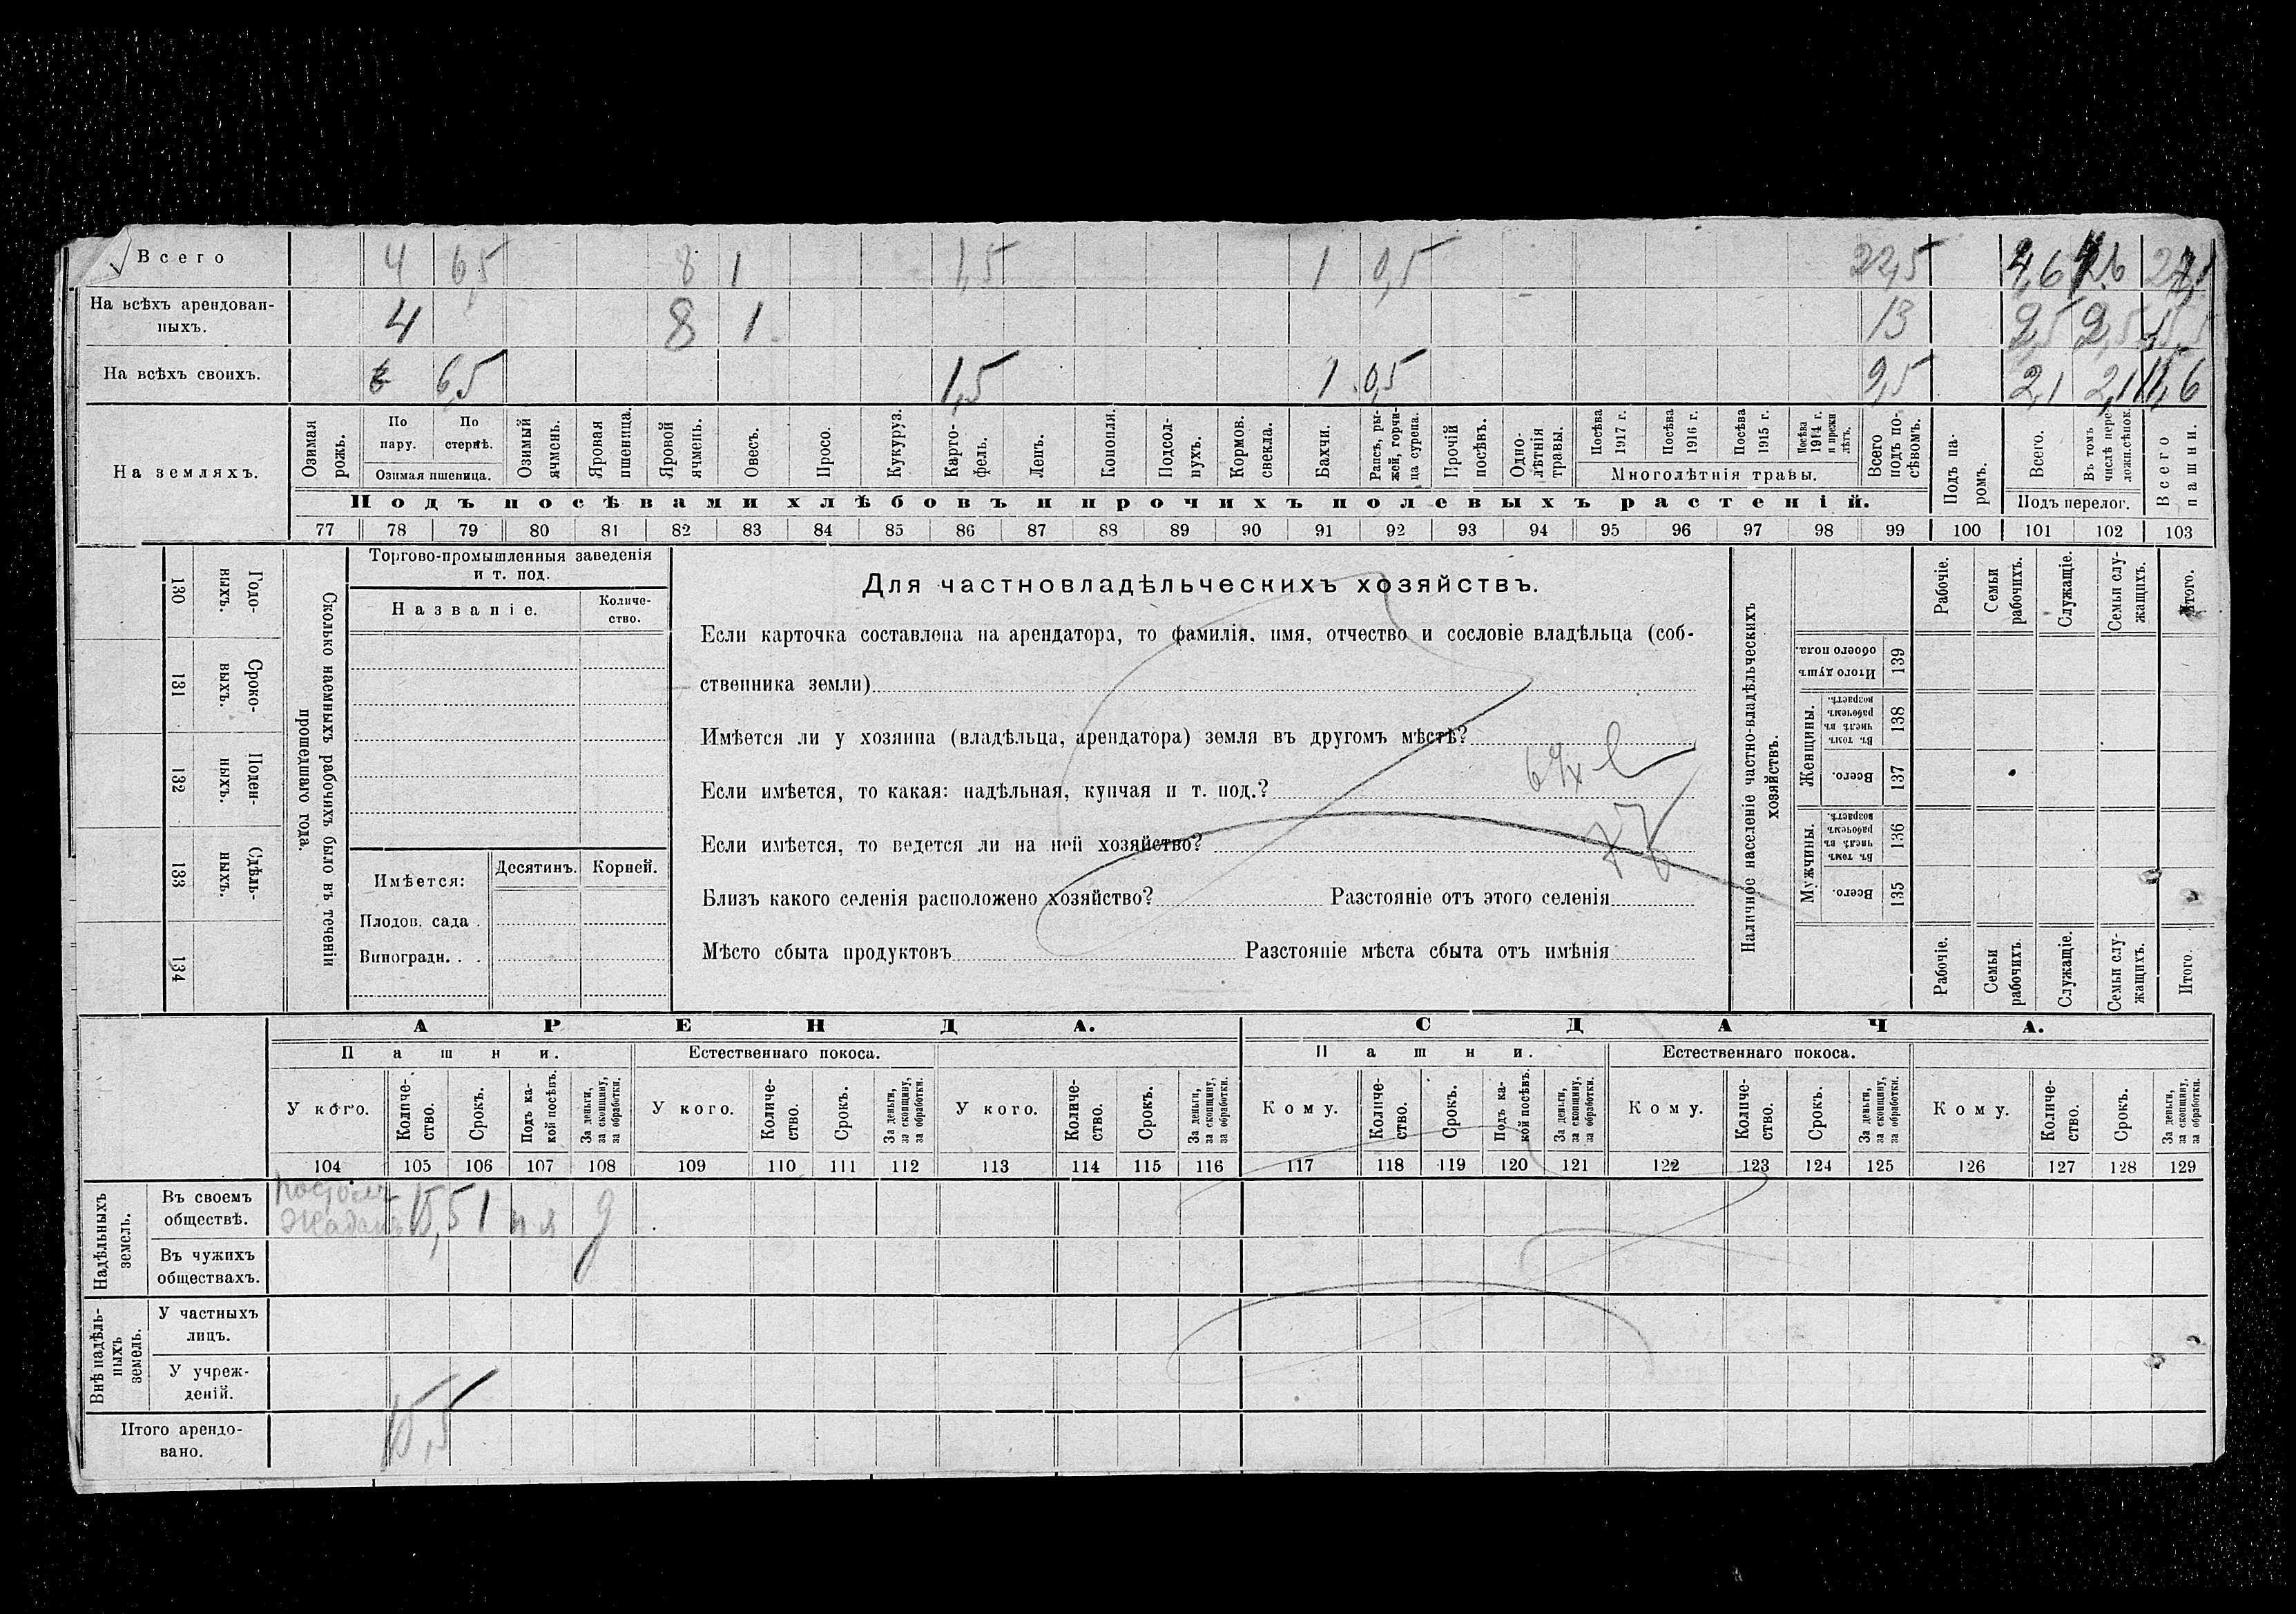 Всего 4 6,5 8 1 1,5 1 0,5 22,5 4,6
На всѣхъ арендован-
ныхъ. 4 8 1 13 2,5 2,5 15,5
На всѣхъ своихъ. 6,5 1,5 1 0,5 9,5 2,1 2,1 11,6
На земляхъ.
Озимая рожь.
По пару.
По стернѣ.
Озимая пшеница.
Озимый ячмень.
Яровая пшеница.
Яровой ячмень.
Овесъ.
Просо.
Кукуруз.
Карто-фель.
Ленъ.
Конопля.
Подсол-нухъ.
Кормов. свекла.
Бахчи.
Рапсъ, ры-жей, горчи-ца сурепа.
Прочій посѣвъ.
Одно-лѣтнія травы.
Посѣва 1917 г.
Посѣва 1916 г.
Посѣва 1915 г.
Посѣва 1914 г. и прежн лѣтъ.
Многолѣтнія травы.
Всего подъ по-сѣвомъ.
Подъ па-ромъ.
Всего.
Въ томъ числѣ пере-ложн.сѣнок.
Подъ перелог.
Всего пашни.
Подъ посѣвами хлѣбовъ и прочихъ полевыхъ растеній.
77 78 79 80 81 82 83 84 85 86 87 88 89 90 91 92 93 94 95 96 97 98 99 100 101 102 103
130 Годо-ныхъ.
131 Сроко-выхъ.
132 Поден-ныхъ.
133 Сдѣль-ныхъ.
134
Сколько наемныхъ рабочихъ было въ теченіи
прошедшаго года.
Торгово-промышленныя заведенія
и т. под.
Названіе.
Количе-
ство.
Имѣется:
Десятинъ. Корней.
Плодов. сада .
Виноградн. . .
Для частновладѣльческихъ хозяйствъ.
Если карточка составлена на арендатора, то фамилія, имя, отчество и сословіе владѣльца (соб-
ственника земли)
Имѣется ли у хозяина (владѣльца, арендатора) земля въ другомъ мѣстѣ?
Если имѣется, то какая: надѣльная, купчая и т. под.?
Если имѣется, то ведется ли на ней хозяйство?
Близъ какого селенія расположено хозяйство? Разстояніе отъ этого селенія
Мѣсто сбыта продуктовъ Разстояніе мѣста сбыта отъ имѣнія
Наличное населеніе частно-владѣльческихъ
хозяйствъ.
Рабочіе.
Семьи рабочихъ.
Служащіе.
Семьи слу-жащихъ.
Итого.
Итого душъ обоего пола. 139
Женщины.
Въ томъ числѣ въ рабочемъ возрастѣ. 138
Всего. 137
Мужчины.
Въ томъ числѣ въ рабочемъ возрастѣ. 136
Всего. 135
Рабочіе.
Семьи рабочихъ.
Служащіе.
Семьи слу-жащихъ.
Итого.
АРЕНДА. СДАЧА.
Пашни. Естественнаго покоса. Пашни. Естественнаго покоса.
У кого.
Количе-ство.
Срокъ.
Подъ ка-кой посѣвъ.
За деньги, за скопщину, за обработки.
У кого.
Количе-ство.
Срокъ.
За деньги, за скопщину, за обработки.
У кого.
Количе-ство.
Срокъ.
За деньги, за скопщину, за обработки.
Кому.
Количе-ство.
Срокъ.
Подъ ка-кой посѣвъ.
За деньги, за скопщину, за обработки.
Кому.
Количе-ство.
Срокъ.
За деньги, за скопщину, за обработки.
Кому.
Количе-ство.
Срокъ.
За деньги, за скопщину, за обработки.
104 105 106 107 108 109 110 111 112 113 114 115 116 117 118 119 120 121 122 123 124 125 126 127 128 129
Надѣльныхъ земель.
Въ своемъ
обществѣ. 15,5 1 д
Въ чужихъ
обществахъ.
Внѣ надѣль-ныхъ земель.
У частныхъ
лицъ.
У учреж-
деній.
Итого арендо-
вано. 15,5